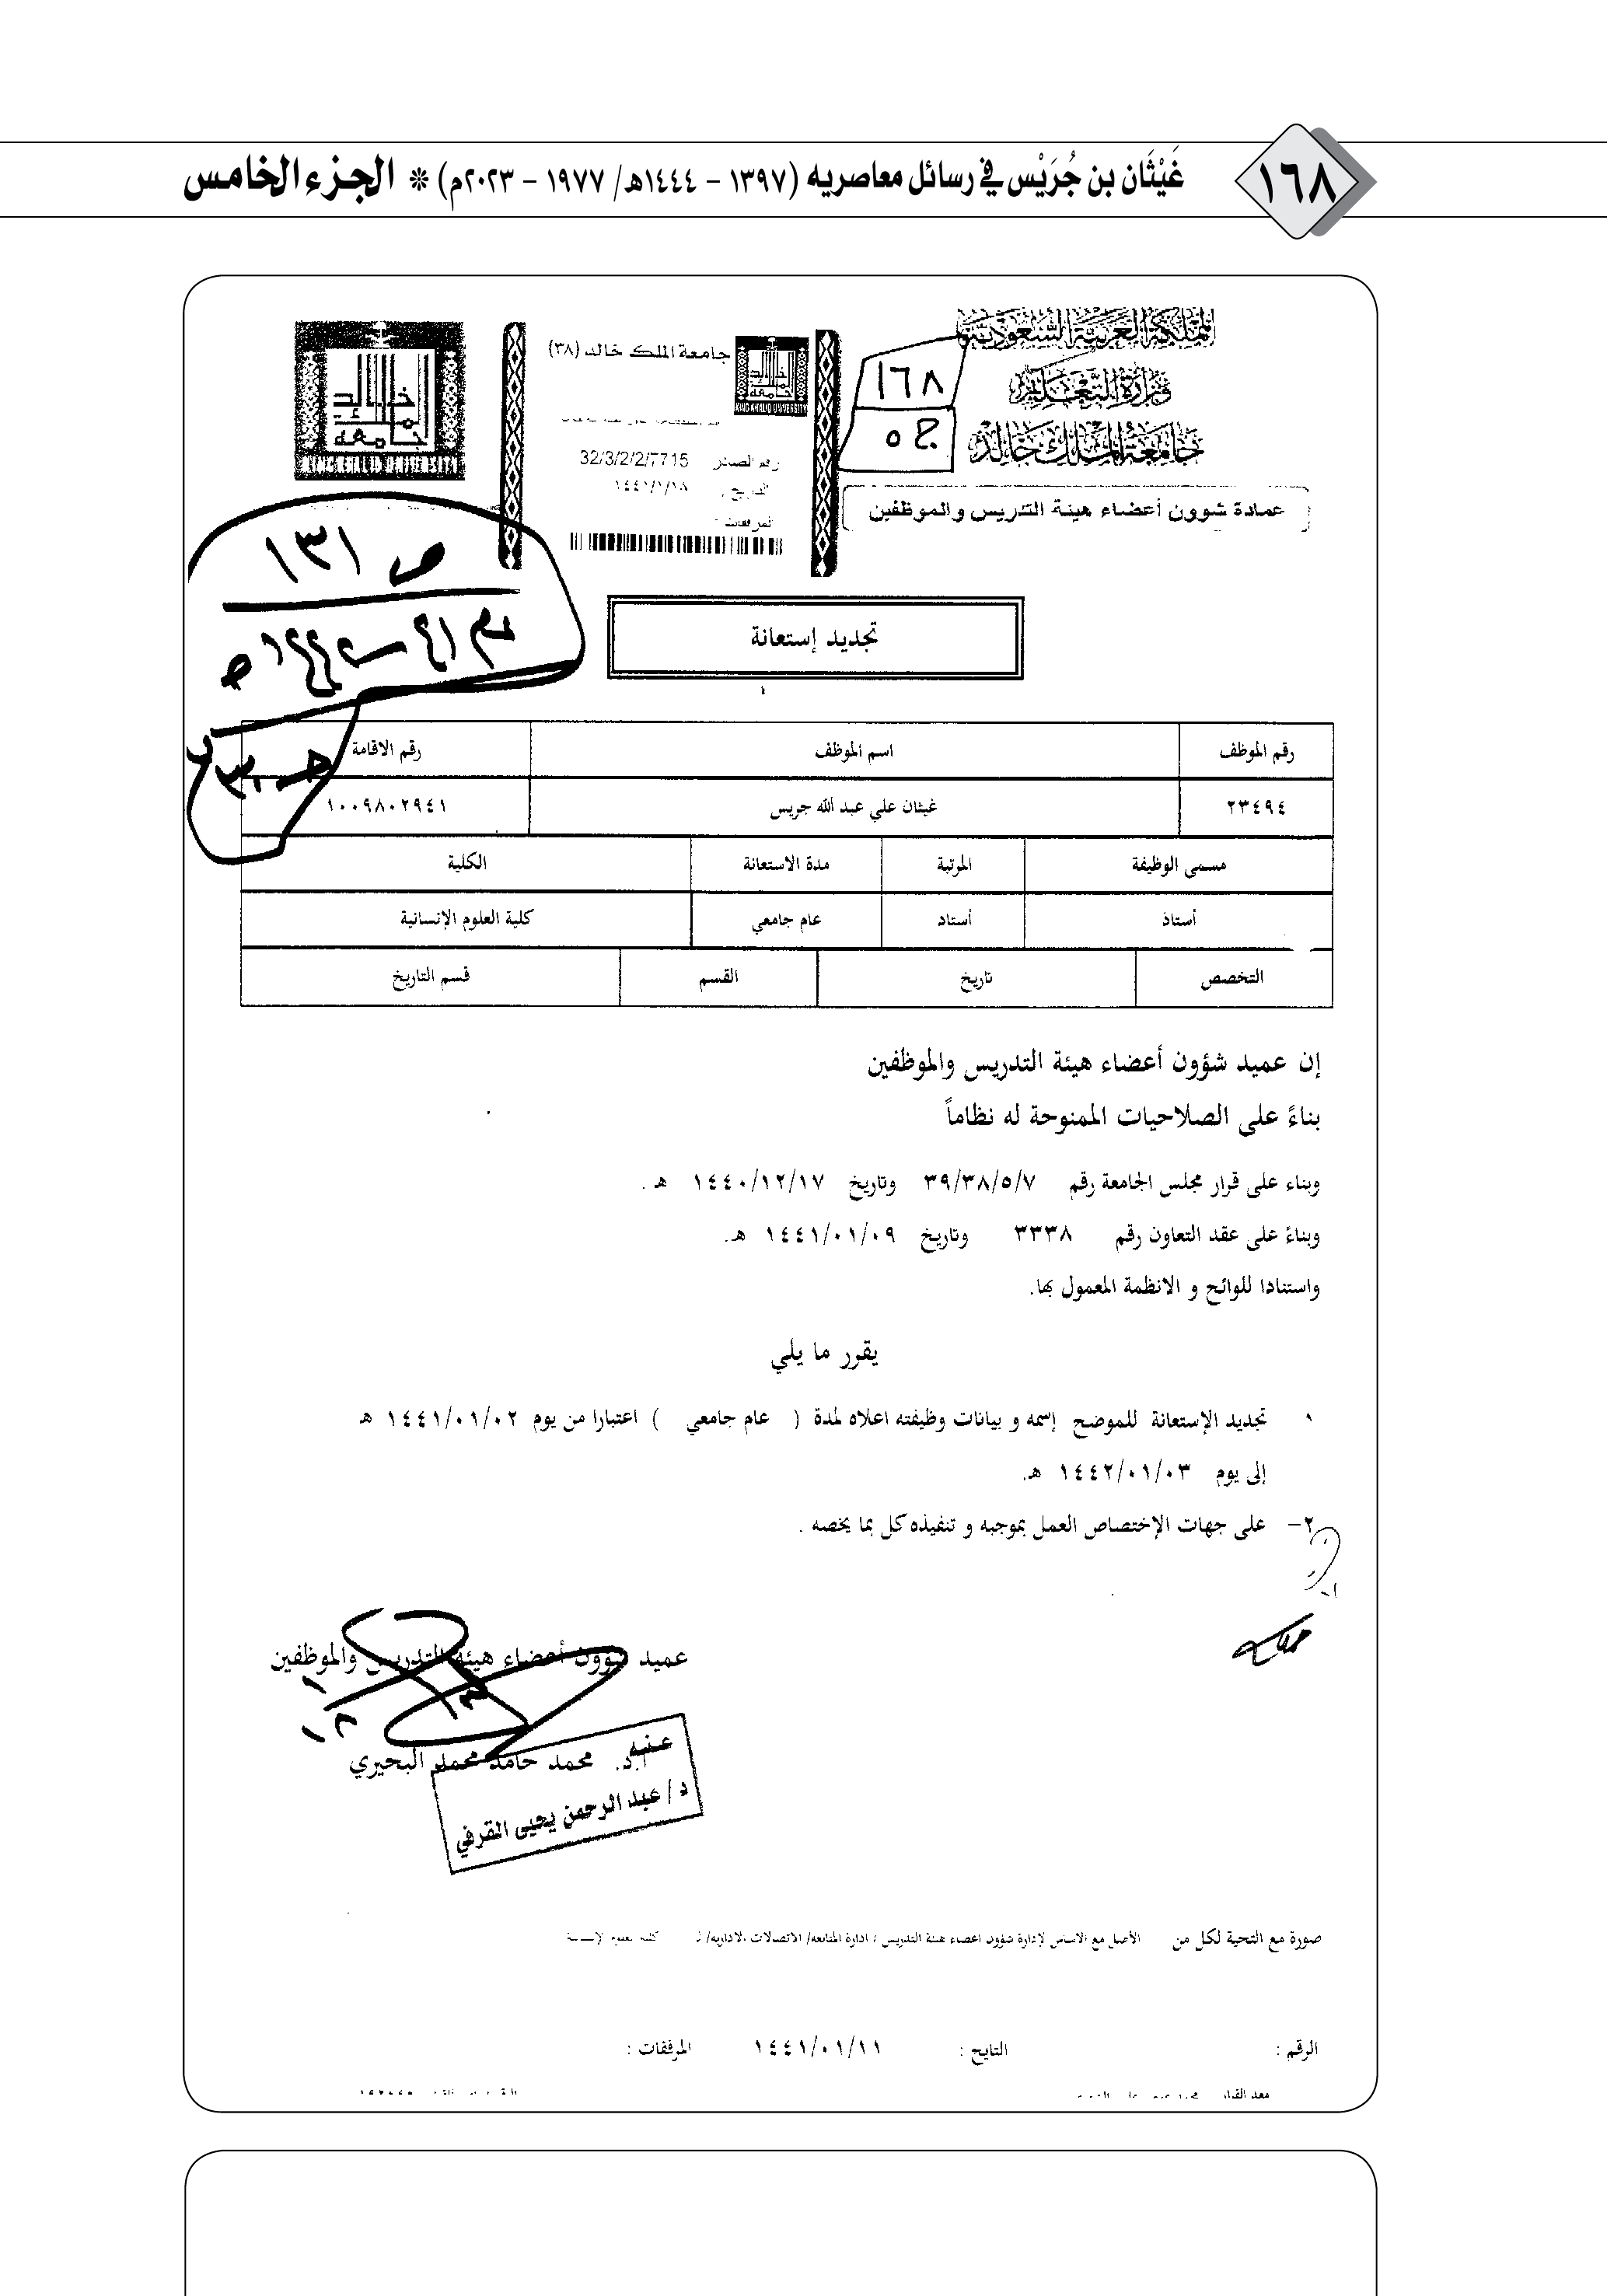 ١٦٨
غَيْثَان بن جُرَيْس في رسائل معاصريه (١٣٩٧ - ١٤٤٤هـ/ ١٩٧٧ - ٢٠٢٣م) * الجزء الخامس
المملكة العربية السعودية
وزارة التعليم
جامعة الملك خالد
عمادة شؤون أعضاء هيئة التدريس والموظفين
١٦٨
ج ٥
جامعة الملك خالد (٣٨)
KING KHALID UNIVERSITY
رقم الصادر 32/3/2/2/7715
التاريخ ١٤٤١/١/١٨
المرفقات :
جامعة الملك خالد
KING KHALID UNIVERSITY
ص ١٣١
تجديد إستعانة
رقم الموظف اسم الموظف رقم الاقامة
٢٣٤٩٤ غيثان علي عبد الله جريس ١٠٠٩٨٠٢٩٤١
مسمى الوظيفة المرتبة مدة الاستعانة الكلية
أستاذ أستاذ عام جامعي كلية العلوم الإنسانية
التخصص تاريخ القسم قسم التاريخ
إن عميد شؤون أعضاء هيئة التدريس والموظفين
بناءً على الصلاحيات الممنوحة له نظاماً
وبناء على قرار مجلس الجامعة رقم ٣٩/٣٨/٥/٧ وتاريخ ١٤٤٠/١٢/١٧ هـ .
وبناءً على عقد التعاون رقم ٣٣٣٨ وتاريخ ١٤٤١/٠١/٠٩ هـ.
واستنادا للوائح و الانظمة المعمول بها.
يقرر ما يلي
١ تجديد الإستعانة للموضح إسمه و بيانات وظيفته اعلاه لمدة ( عام جامعي ) اعتبارا من يوم ١٤٤١/٠١/٠٢ هـ
إلى يوم ١٤٤٢/٠١/٠٣ هـ.
٢- على جهات الإختصاص العمل بموجبه و تنفيذه كل بما يخصه .
عميد شؤون أعضاء هيئة التدريس والموظفين
أ.د. محمد حامد محمد البحيري
عنه
د / عبد الرحمن يحيى المقرفي
صورة مع التحية لكل من الأصل مع الاساس لإدارة شؤون اعضاء هيئة التدريس / ادارة المتابعة/ الاتصالات الادارية/
الرقم : التايح : ١٤٤١/٠١/١١ المرفقات :
معد القرار